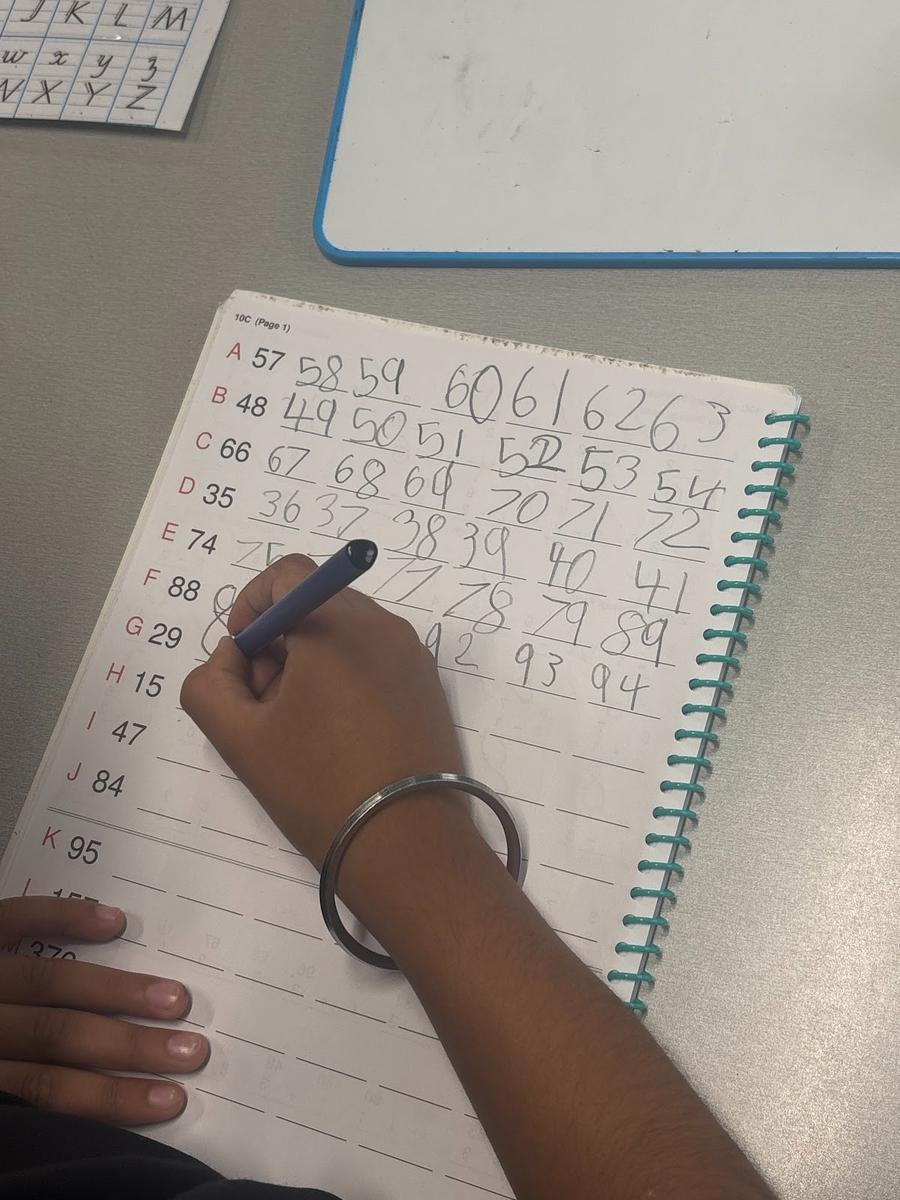 J K L M
w x y z
X Y Z
10C (Page 1)
A 57 58 59 60 61 62 63
B 48 49 50 51 52 53 54
C 66 67 68 69 70 71 72
D 35 36 37 38 39 40 41
E 74 75 77 78 79 89
F 88 92 93 94
G 29
H 15
I 47
J 84
K 95